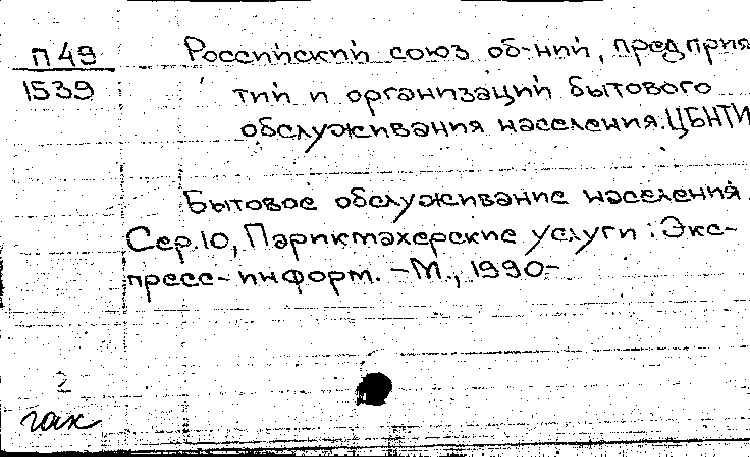 П49
1539
Российский союз об-ний, предприя
тий и организаций бытового
обслуживания населения. ЦБНТИ
Бытовое обслуживание населения
Сер.10, Парикмахерские услуги: Экс-
пресс-информ. – М., 1990-
2